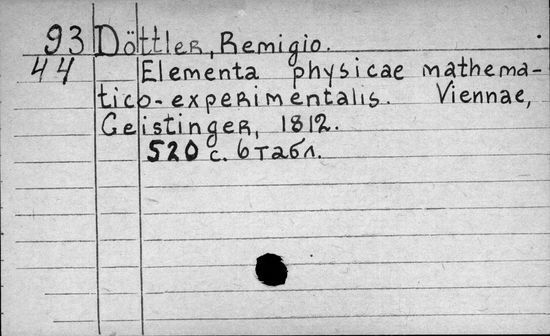 93 Döttler, Remigio.
44 Elementa physicae mathema-
tico-experimentalis. Viennae,
Geistinger, 1812.
520 с. 6 табл.